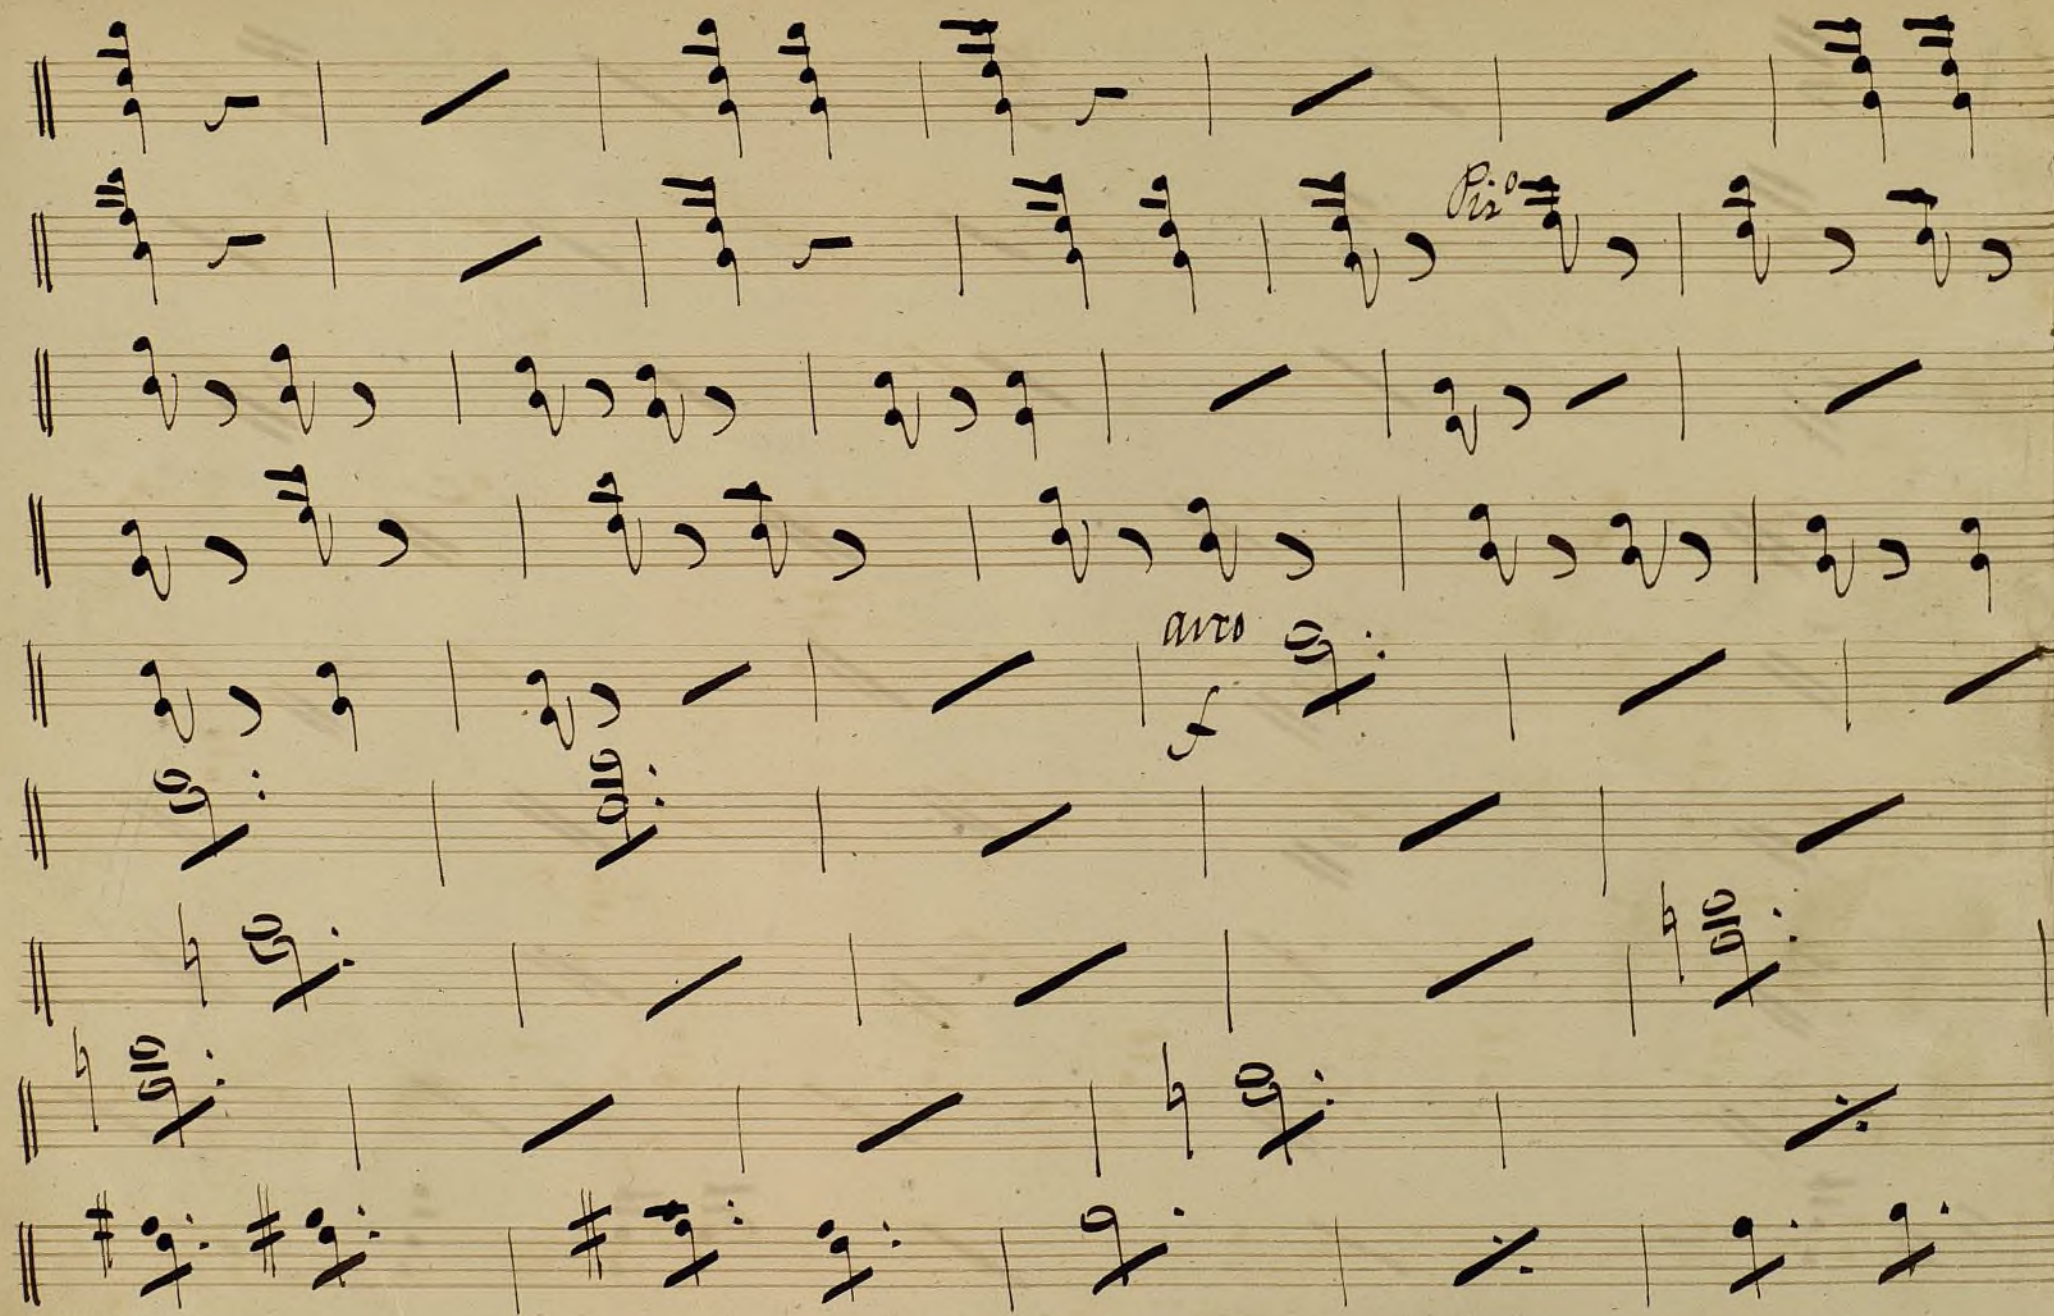 Pizº
arco
f